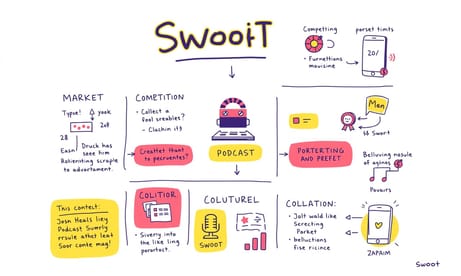 SwooiT
Competting
porset timts
20/
• Furnettions
mavizine
MARKET
Typue!
yook
2of
28
Easn
Druck has
seee him
Rabienting scraple
to advartament.
COMETITION
• Collect a
fool sreables?
- Clachin it3
Creattet thant
to pecruentes?
PODCAST
Men
$$ Swort
PORTERTING
AND PREFET
Belluving nasule of
aginas
Pavairs
This contect:
Josh Heals liey
Podcast Sumrly
rrsule athet leat
Soor conte mag!
COLITIOR
• Siverty into
the like ling
parartact.
COLUTUREL
SWOOT
COLLATION:
• Jolt wald like
Serecting
Parket
• belluctions
fise ricince
ZAPAIM
Swoot